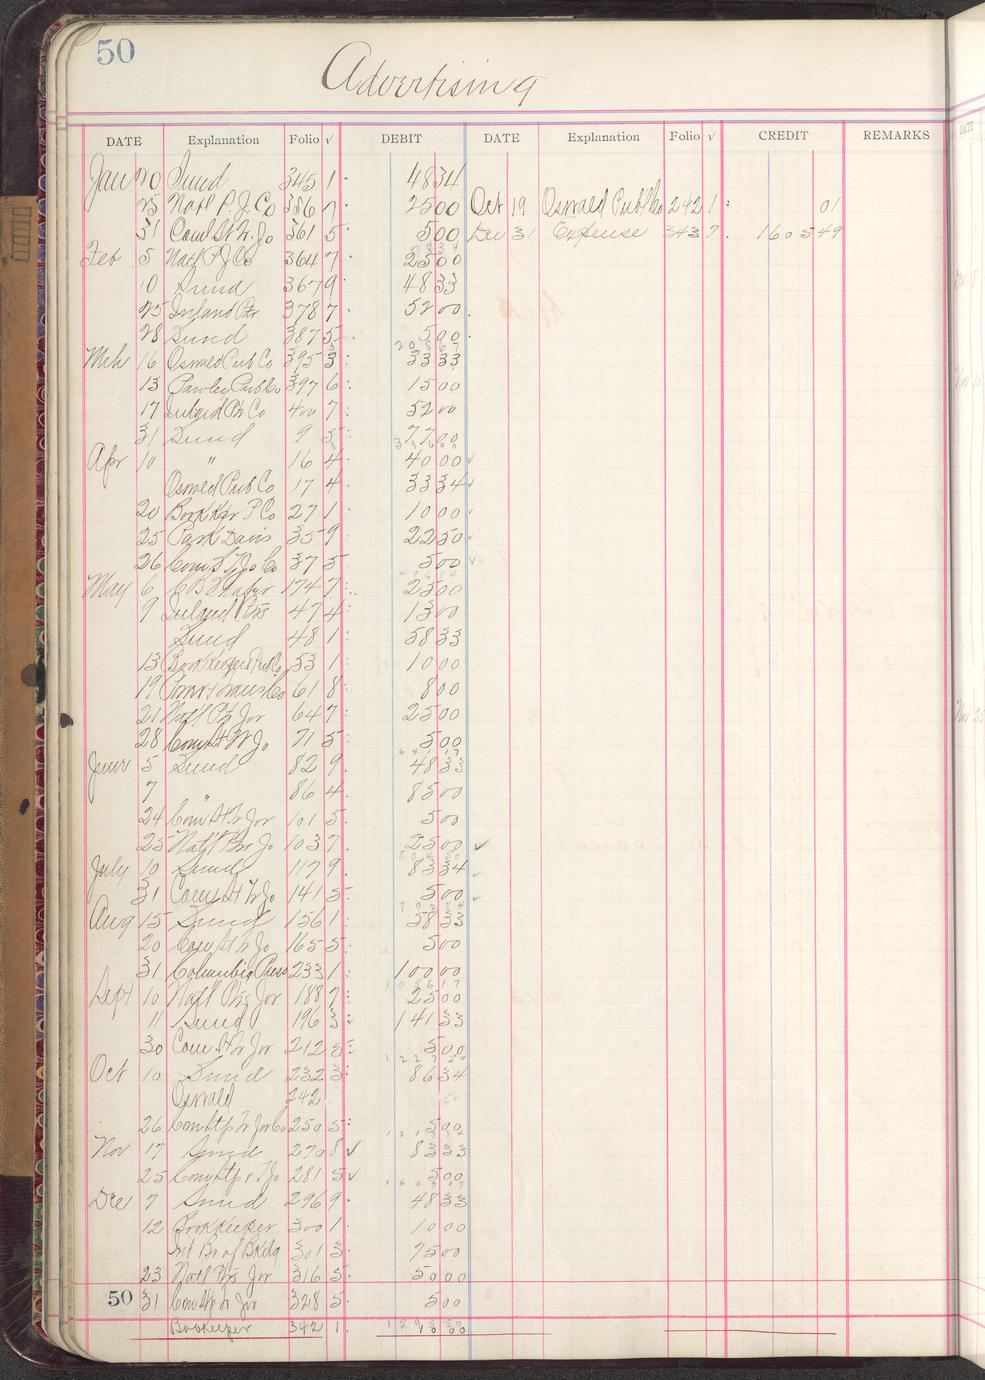 50
Advertising
DATE Explanation Folio √ DEBIT DATE Explanation Folio √ CREDIT REMARKS
Jan 20 Sund 345 1 48 34
25 Natl P. J. Co 356 7 25 00 Oct 19 Oswald Publ Co 242 1 01
31 Com St Tr. Jo 361 5 5 00 Dec 31 Expense 343 7 1605 49
Feb 5 Natl P J Co 364 7 25 00
10 Sund 367 9 48 33
25 Inland Ptr 378 7 52 00
28 Sund 387 5 5 00
Mch 16 Oswald Pub Co 395 3 33 33
13 Publ Co 397 6 15 00
17 Inland Ptr Co 400 7 52 00
31 Sund 9 5 77 00
Apr 10 " 16 4 40 00
Oswald Pub Co 17 4 33 34
20 Book Kpr P Co 27 1 10 00
25 Park Davis 35 9 22 50
26 Com S T Jo Co 37 5 5 00
May 6 C B 174 7 25 00
9 Inland Ptrs 47 4 13 00
Sund 48 1 58 33
13 Bookkeeper Pub Co 53 1 10 00
19 Co 61 8 8 00
21 Natl Ptr Jor 64 7 25 00
28 Com St Tr Jo 71 5 5 00
June 5 Sund 82 9 48 33
7 " 86 4 85 00
24 Com St Tr Jor 101 5 5 00
25 Natl Ptr Jo 103 7 25 00
July 10 Sund 117 9 83 34
31 Com St Tr Jo 141 5 5 00
Aug 15 Sund 156 1 58 33
20 Com St Tr Jo 165 5 5 00
31 Columbia Press 233 1 100 00
Sept 10 Natl Ptg Jor 188 7 25 00
11 Sund 196 3 141 33
30 Com St Tr Jor 212 5 5 00
Oct 10 Sund 232 3 86 34
Oswald 242
26 Com Stp Tr Jor Co 250 5 5 00
Nov 17 Sund 270 8 √ 83 33
25 Com Stp r T Jo 281 5 √ 5 00
Dec 7 Sund 296 9 48 33
12 Bookkeeper 300 1 10 00
Int Br of Bkdg 301 3 75 00
23 Natl Ptrs Jor 316 5 50 00
50 31 Com Stp Tr Jor 328 5 5 00
Bookeeper 342 1